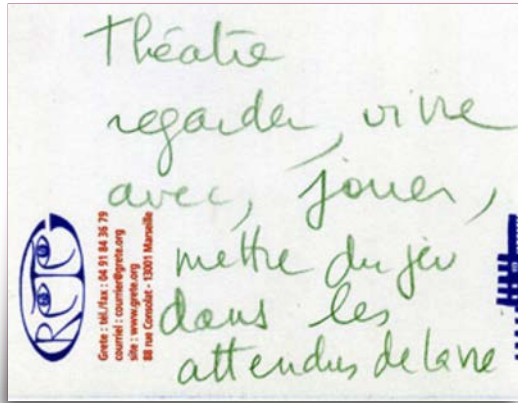 Théâtre
regarder, vivre
avec, jouer,
mettre du jeu
dans les
attendus de la vie
GRETE
Grete : tél./fax : 04 91 84 36 79
courriel : courrier@grete.org
site : www.grete.org
88 rue Consolat - 13001 Marseille